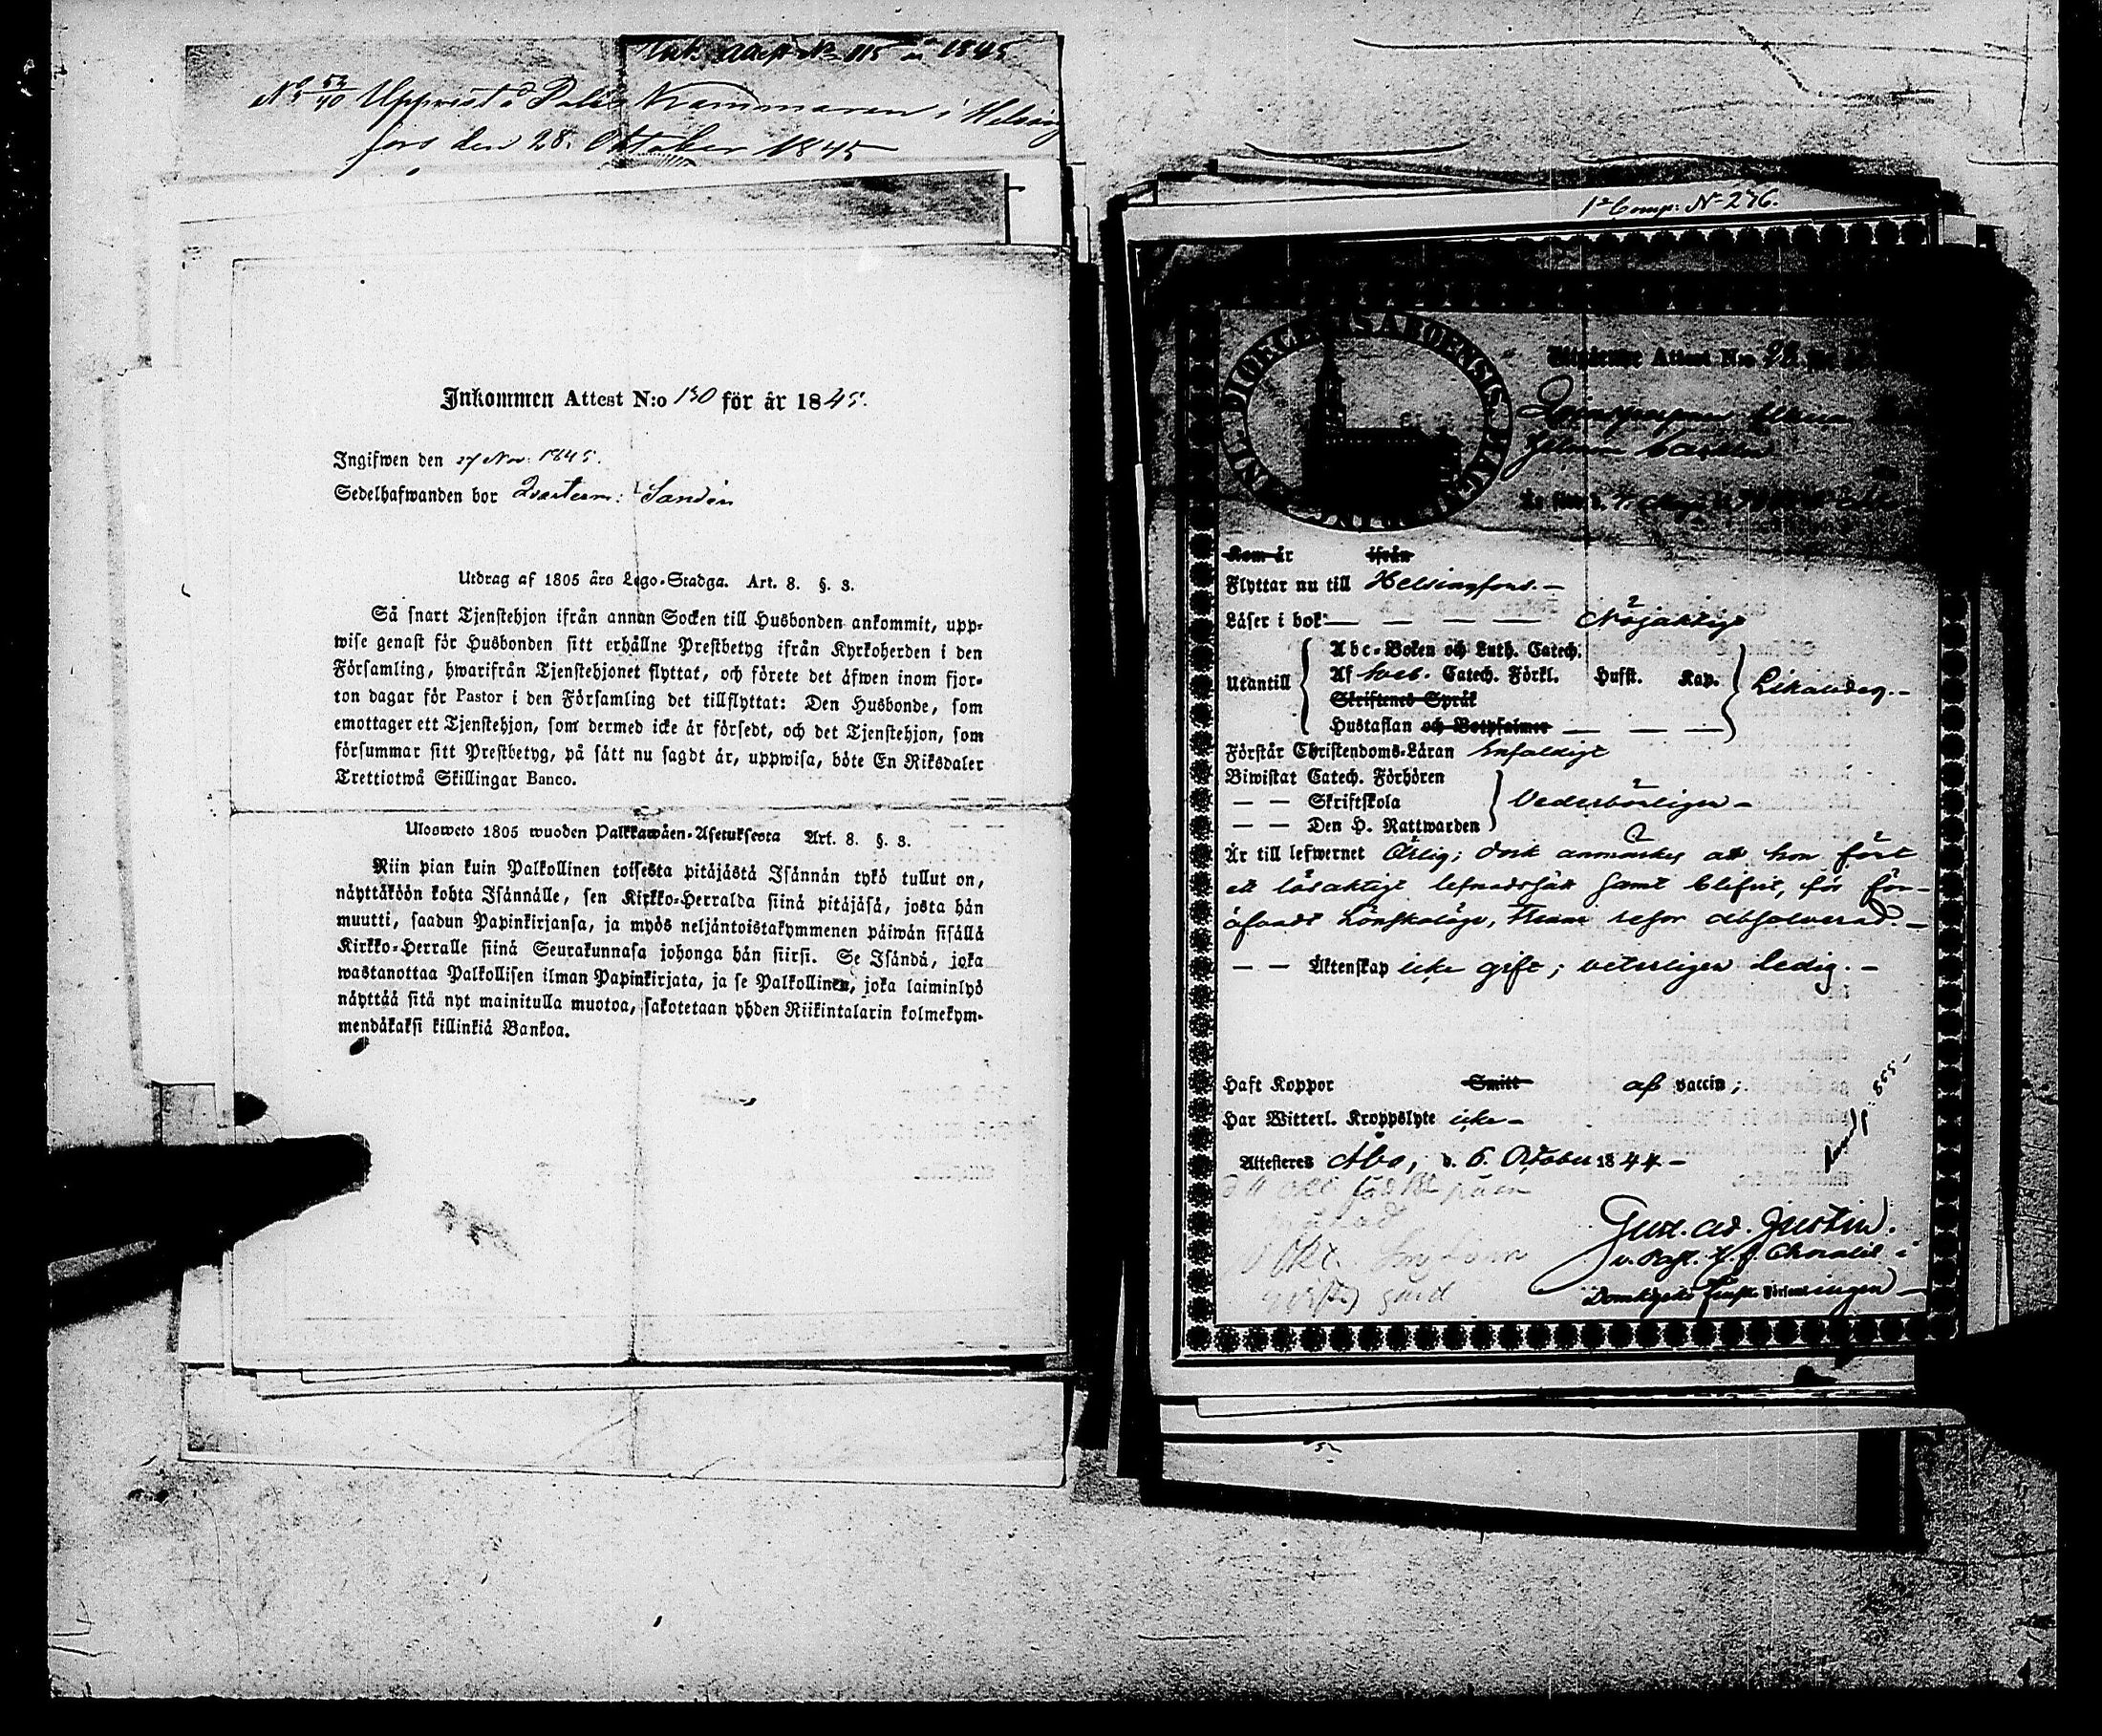 Ink. Attest No 115 år 1845
No 52/40 Uppvist å Polis Kammaren i Helsing
fors den 28. Oktober 1845
Inkommen Attest N:o 130 för år 1845.
Ingifwen den 27 Nov. 1845.
Sedelhafwanden bor Qvarterm: Sandin
Utdrag af 1805 års Lego-Stadga. Art. 8. §. 3.
Så snart Tjenstehjon ifrån annan Socken till Husbonden ankommit, upp-
wise genast för Husbonden sitt erhållne Prestbetyg ifrån Kyrkoherden i den
Församling, hwarifrån Tjenstehjonet flyttat, och förete det äfwen inom fjor-
ton dagar för Pastor i den Församling det tillflyttat: Den Husbonde, som
emottager ett Tjenstehjon, som dermed icke är försedt, och det Tjenstehjon, som
försummar sitt Prestbetyg, på sätt nu sagdt är, uppwisa, böte En Riksdaler
Trettiotwå Skillingar Banco.
Ulosweto 1805 wuoden Palkkawäen-Asetuksesta Art. 8. §. 3.
Niin pian kuin Palkollinen toisesta pitäjästä Isännän tykö tullut on,
näyttäköön kohta Isännälle, sen Kirkko-Herralda siinä pitäjäsä, josta hän
muutti, saadun Papinkirjansa, ja myös neljäntoistakymmenen päiwän sisällä
Kirkko-Herralle siinä Seurakunnasa johonga hän siirsi. Se Isändä, joka
wastanottaa Palkollisen ilman Papinkirjata, ja se Palkollinen, joka laiminlyö
näyttää sitä nyt mainitulla muotoa, sakotetaan yhden Riikintalarin kolmekym-
mendäkaksi killinkiä Bankoa.
1a Comp: No 276.
DIOECESIS ABOENSIS
Attest N:o 92
Kom år ifrån
Flyttar nu till Helsingfors.—
Läser i bok — — — — Nöjaktigt
Utantill
Abc-Boken och Luth. Catech.
Af Sveb. Catech. Förkl. Husst. Kap.
Skriftenes Språk
Hustaflan och Botpsalmer — — —
Likaledes.—
Förstår Christendoms-Läran Enfaldigt
Biwistat Catech. Förhören
— — Skriftskola
— — Den H. Nattwarden
Vederbörligen —
Är till lefwernet Ärlig; dock anmärkes att hon fört
ett lösaktigt lefnadssätt samt blifvit, för för-
öfvadt Lönskaläge, trenne resor absolverad.—
— — Äktenskap icke gift; veterligen Ledig.—
Haft Koppor Smitt af vaccin;
Har Witterl. Kroppslyte icke—
Attesteras Åbo, d. 6. October 1844—
Gust. Ad. Justin.
v. Past. i
Domkyrko Finska Församlingen—